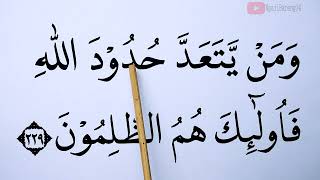 وَمَنْ يَّتَعَدَّ حُدُوْدَ اللّٰهِ
فَاُولٰۤىِٕكَ هُمُ الظّٰلِمُوْنَ ﴿٢٢٩﴾